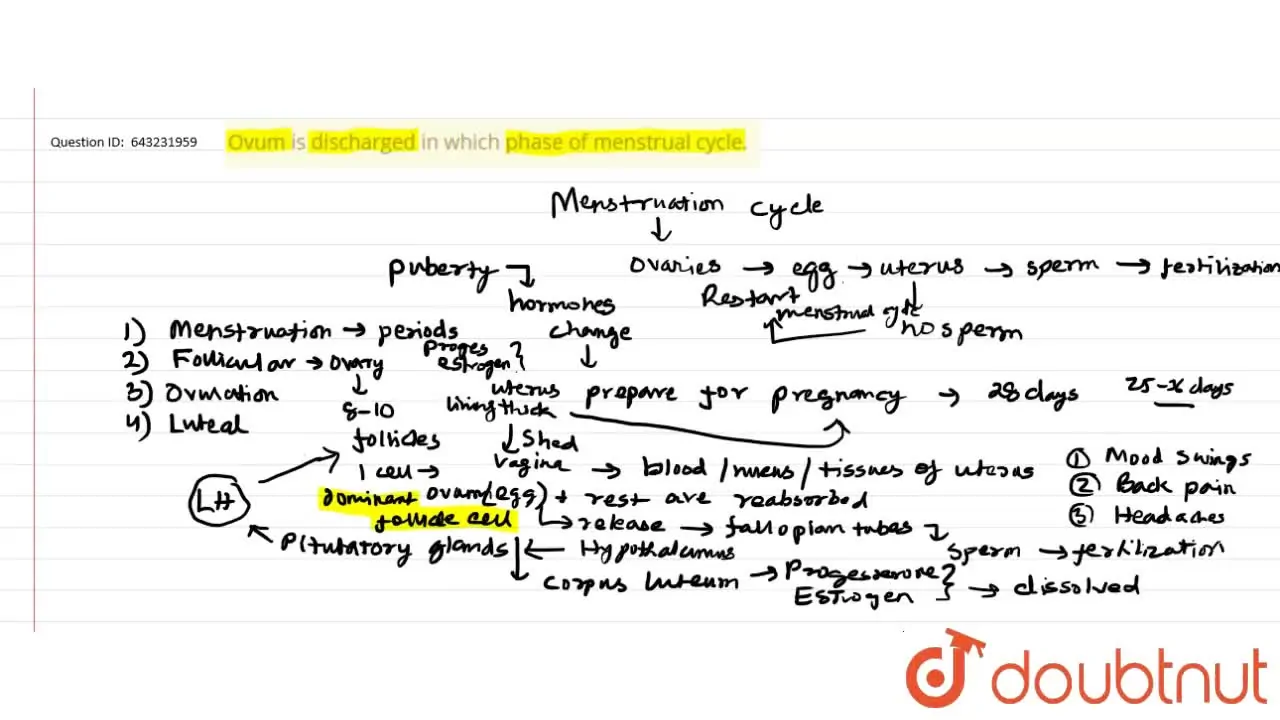 Question ID: 643231959 Ovum is discharged in which phase of menstrual cycle.
Menstruation cycle
puberty ovaries → egg → uterus → sperm → fertilization
hormones Restart menstrual cycle
1) Menstruation → periods change no sperm
2) Follicular → ovary proges estrogen
3) Ovulation uterus prepare for pregnancy → 28 days 25-x days
8-10 lining thick
4) Luteal
follicles shed
1 cell → vagina → blood / mucus / tissues of uterus ① Mood swings
LH dominant ovum (egg) + rest are reabsorbed ② Back pain
follicle cell release → fallopian tubes ③ Headaches
Pitutatory glands ← Hypothalamus sperm → fertilization
corpus luteum → Progesterone
Estrogen → dissolved
doubtnut